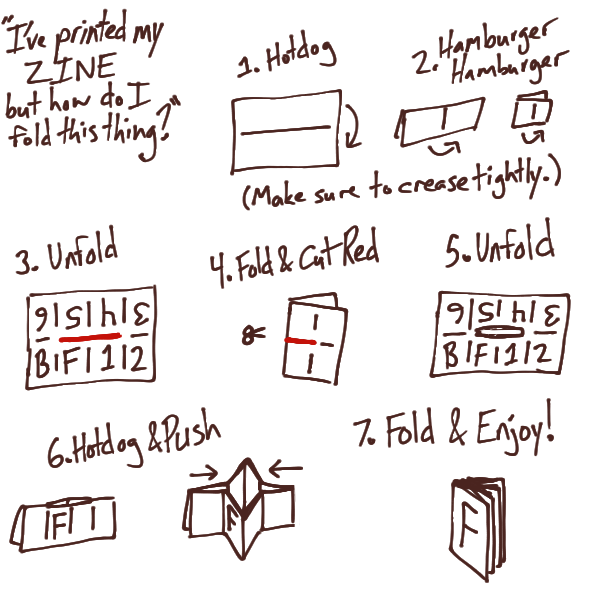 "I've printed my
ZINE
but how do I
fold this thing?"
1. Hotdog
2. Hamburger
Hamburger
(Make sure to crease tightly.)
3. Unfold
6 5 4 3
B F 1 2
4. Fold & Cut Red
5. Unfold
6 5 4 3
B F 1 2
6. Hotdog & Push
F
F
7. Fold & Enjoy!
F